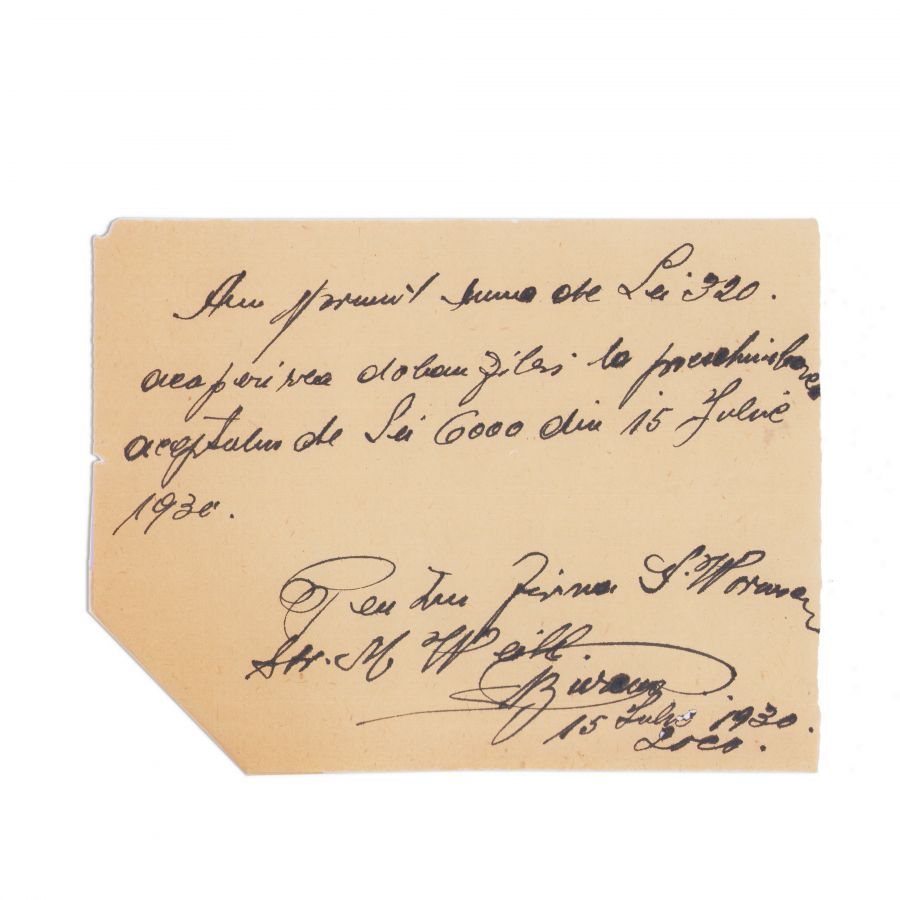 Am primit suma de Lei 320.
acoperirea dobanzilei la preschimbarea
aceptului de Lei 6000 din 15 Julie
1930.
Pentru firma S.
Str. M Weill.
15 Julie 1930.
Loco.